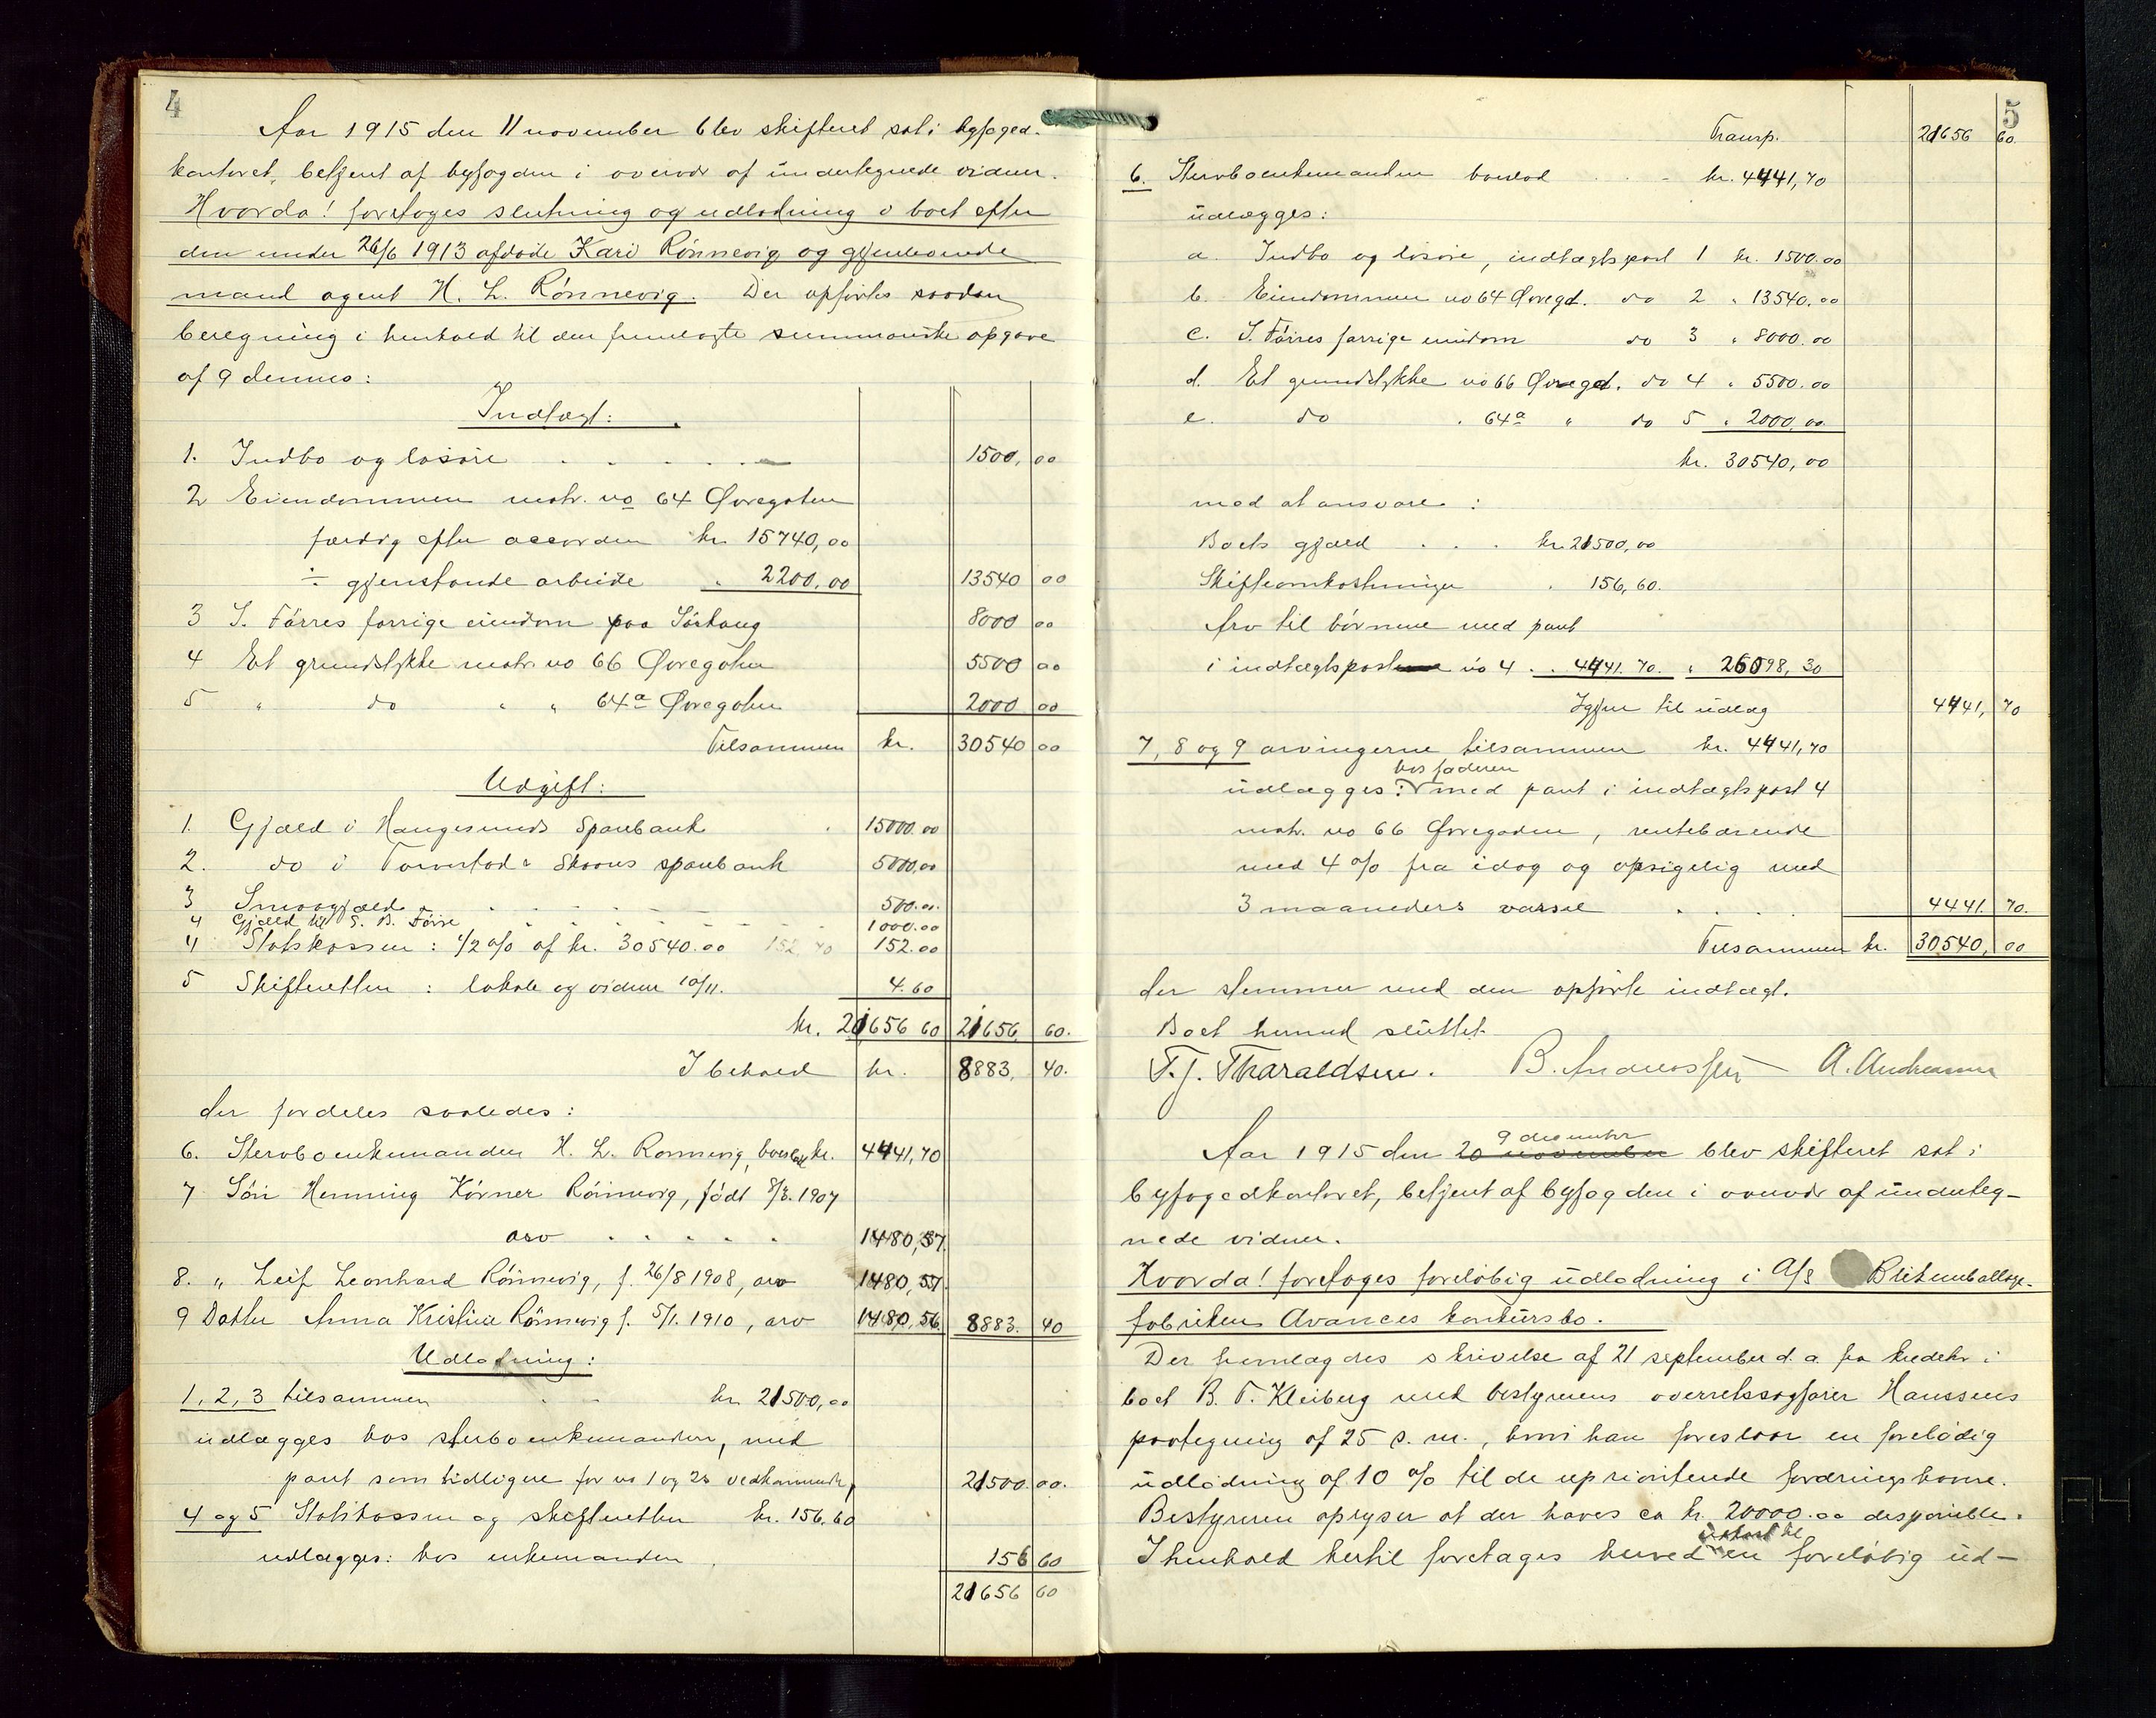 4
Aar 1915 den 11 november blev skifteret sat i byfoged-
kontoret, betjent af byfogden i overvær af undertegnede vidner.
Hvorda! foretoges slutning og udlodning i boet efter
den under 26/6 1913 afdøde Kari Rönnevig og gjenlevende
mand agent H. L. Rönnevig. Der opførtes saadan
beregning i henhold til den fremlagte summariske opgave
af 9 dennes:
Indtægt:
1. Indbo og løsøre . . . . . 1500,00
2 Eiendommen matr. no 64 Øvregaten
færdig efter accorden kr. 15740,00
÷ gjenstaaende arbeide " 2200,00 13540 00
3 S. Førres forrige eiendom paa Sörhaug 8000 00
4 Et grundstykke matr. no 66 Øvregaten 5500 00
5 " do " " 64a Øvregaten 2000 00
Tilsammen kr. 30540 00
Udgift:
1. Gjæld i Haugesunds Sparebank . 15000.00
2. do i Torvestad & Skaares sparebank 5000,00
3 Smaagjæld . . . . . 500.00
4 Gjæld til S. B. Førre . . . . . 1000.00
4 Statskassen: 1/2 % af kr. 30540.00 152.70 152.00
5 Skifteretten: lokale og vidner 10/11. 4.60
kr. 21656 60 21656 60.
I behold kr. 8883, 40.
der fordeles saaledes:
6. Sterboenkemanden H. L. Rönnevig, boeslod kr. 4441,70
7 Sön Henning Körner Rönnevig, født 8/3. 1907
arv . . . . . 1480,57.
8. " Leif Leonhard Rönnevig, f. 26/8 1908, arv 1480,57.
9 Datter Anna Kristine Rönnevig f. 5/1. 1910, arv 1480,56. 8883. 40
Udlodning:
1, 2, 3 tilsammen . . kr. 21500,00
udlægges hos sterboenkemanden, med
pant som tidligere for no 1 og 2s vedkommende, 21500.00.
4 og 5 Statskassen og skifteretten kr. 156.60
udlægges: hos enkemanden . 156 60
21656 60
5
Transp. 21656 60.
6. Sterboenkemanden boeslod . . - kr. 4441,70
udlægges:
a. Indbo og løsøre, indtægtspost 1 kr. 1500.00
b. Eiendommen no 64 Øvregd. do 2 " 13540.00
c. S. Førres forrige eiendom do 3 " 8000.00
d. Et grundstykke no 66 Øvregd. do 4 " 5500.00
e. do . 64a " do 5 " 2000,00.
kr. 30540,00
mod at ansvare :
Boets gjæld . . . kr. 21500,00
Skifteomkostninger . 156,60.
Arv til börnene med pant
i indtægtspost no 4 . . 4441.70. " 26098,30
Igjen til udlæg 4441, 70
7, 8 og 9 arvingerne tilsammen kr. 4441,70
hos faderen
udlægges: med pant i indtægtspost 4
matr. no 66 Øvregaden, rentebærende
med 4 % fra idag og opsigelig med
3 maaneders varsel . . . . 4441. 70.
Tilsammen kr. 30540, 00
der stemmer med den opførte indtægt.
Boet hermed sluttet.
T. J. Tharaldsen. B. Andreassen A. Andreassen
9 december
Aar 1915 den 20 november blev skifteret sat i
byfogedkontoret, betjent af byfogden i overvær af underteg-
nede vidner.
Hvorda! foretoges foreløbig udlodning i A/S Blikemballage-
fabriken Avances konkursbo.
Der fremlagdes skrivelse af 21 september d. a. fra kreditor i
boet B. T. Kleiberg med bestyrerens overretssagfører Hanssens
paategning af 25 s. m., hvori han foreslaar en foreløbig
udlodning af 10 % til de uprioriterede fordringshavere.
Bestyreren oplyser at der haves ca kr. 20000.00 disponible.
I henhold hertil foretages herved en foreløbig ud-